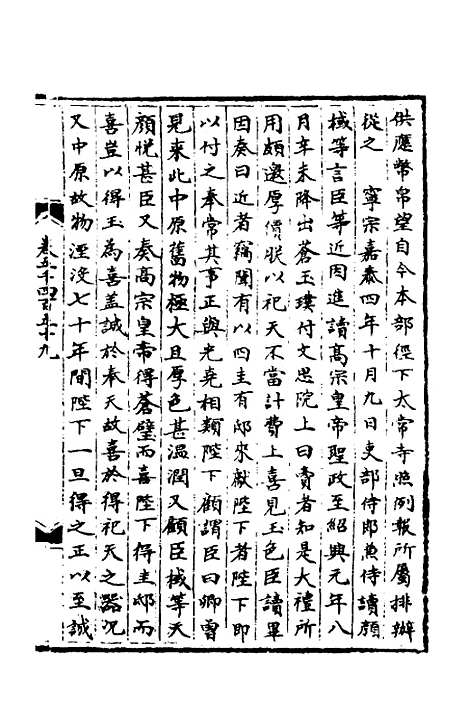 供應幣帛望自今本部徑下太常寺照例報所屬排辦
從之　寧宗嘉泰四年十月九日吏部侍郎兼侍讀顏
棫等言臣等近因進讀髙宗皇帝聖政至紹興元年八
月辛未降出蒼玉璞付文思院上曰賣者知是大禮所
用頗邀厚價朕以祀天不當計費上喜見玉色臣讀畢
因奏曰近者竊聞有以四圭有邸來獻陛下者陛下即
以付之奉常其事正與光堯相類陛下顧謂臣曰卿曽
見來此中原舊物極大且厚色甚温潤又顧臣棫等天
顔恱甚臣又奏髙宗皇帝得蒼璧而喜陛下得圭邸而
喜豈以得玉為喜盖誠於奉天故喜於得祀天之器况
又中原故物湮沒七十年間陛下一旦得之正以至誠
卷五千四百五十九